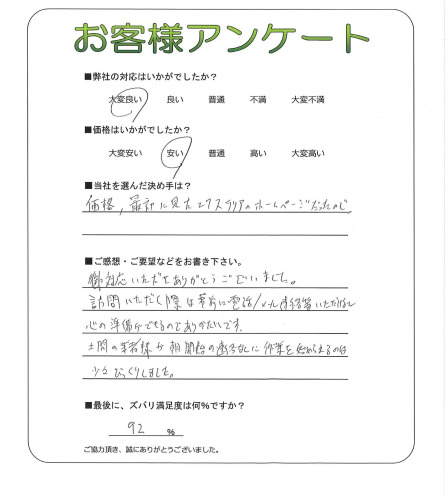 お客様アンケート
■弊社の対応はいかがでしたか？
大変良い 良い 普通 不満 大変不満
■価格はいかがでしたか？
大変安い 安い 普通 高い 大変高い
■当社を選んだ決め手は？
価格，最初に見たエクステリアのホームページだったので，
■ご感想・ご要望などをお書き下さい。
御対応いただきありがとうございました。
訪問いただく際は事前に電話/メール連絡等いただければ
心の準備ができるのでありがたいです。
土間の業者様が朝開始の連絡なしに作業を始められるのは
少々びっくりしました。
■最後に、ズバリ満足度は何%ですか？
92 %
ご協力頂き、誠にありがとうございました。